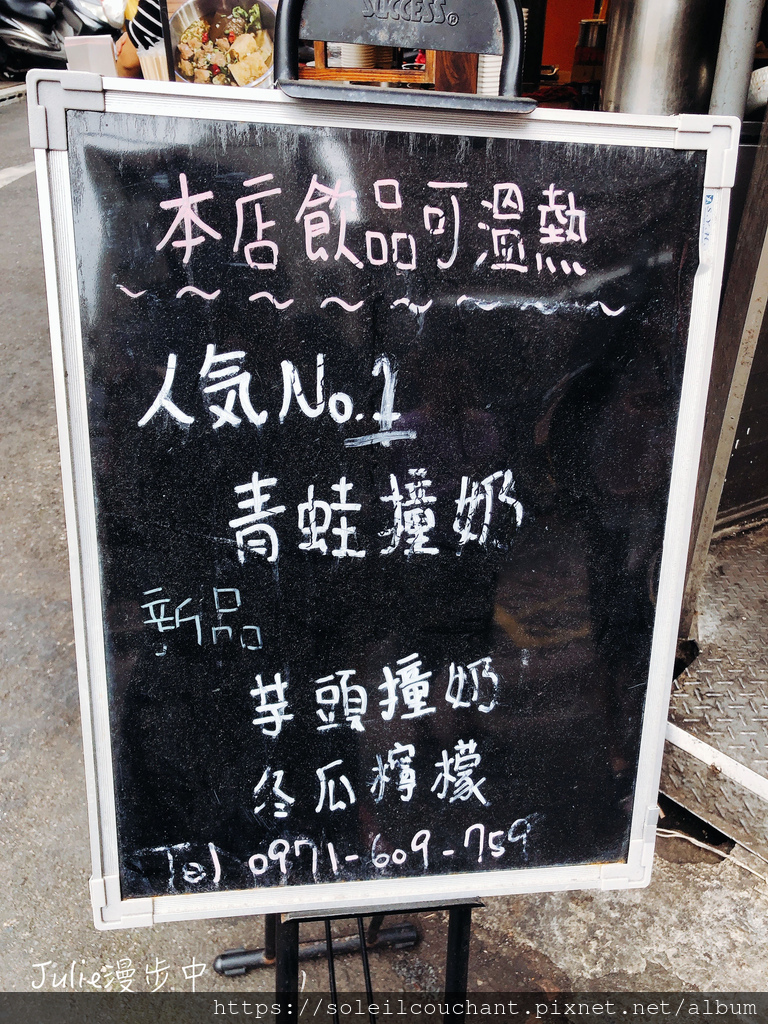 SUCCESS®
本店飲品可溫熱
～～～～～～～
人気No.1
青蛙撞奶
新品
芋頭撞奶
冬瓜檸檬
Tel 0971-609-759
Julie漫步中
https://soleilcouchant.pixnet.net/album